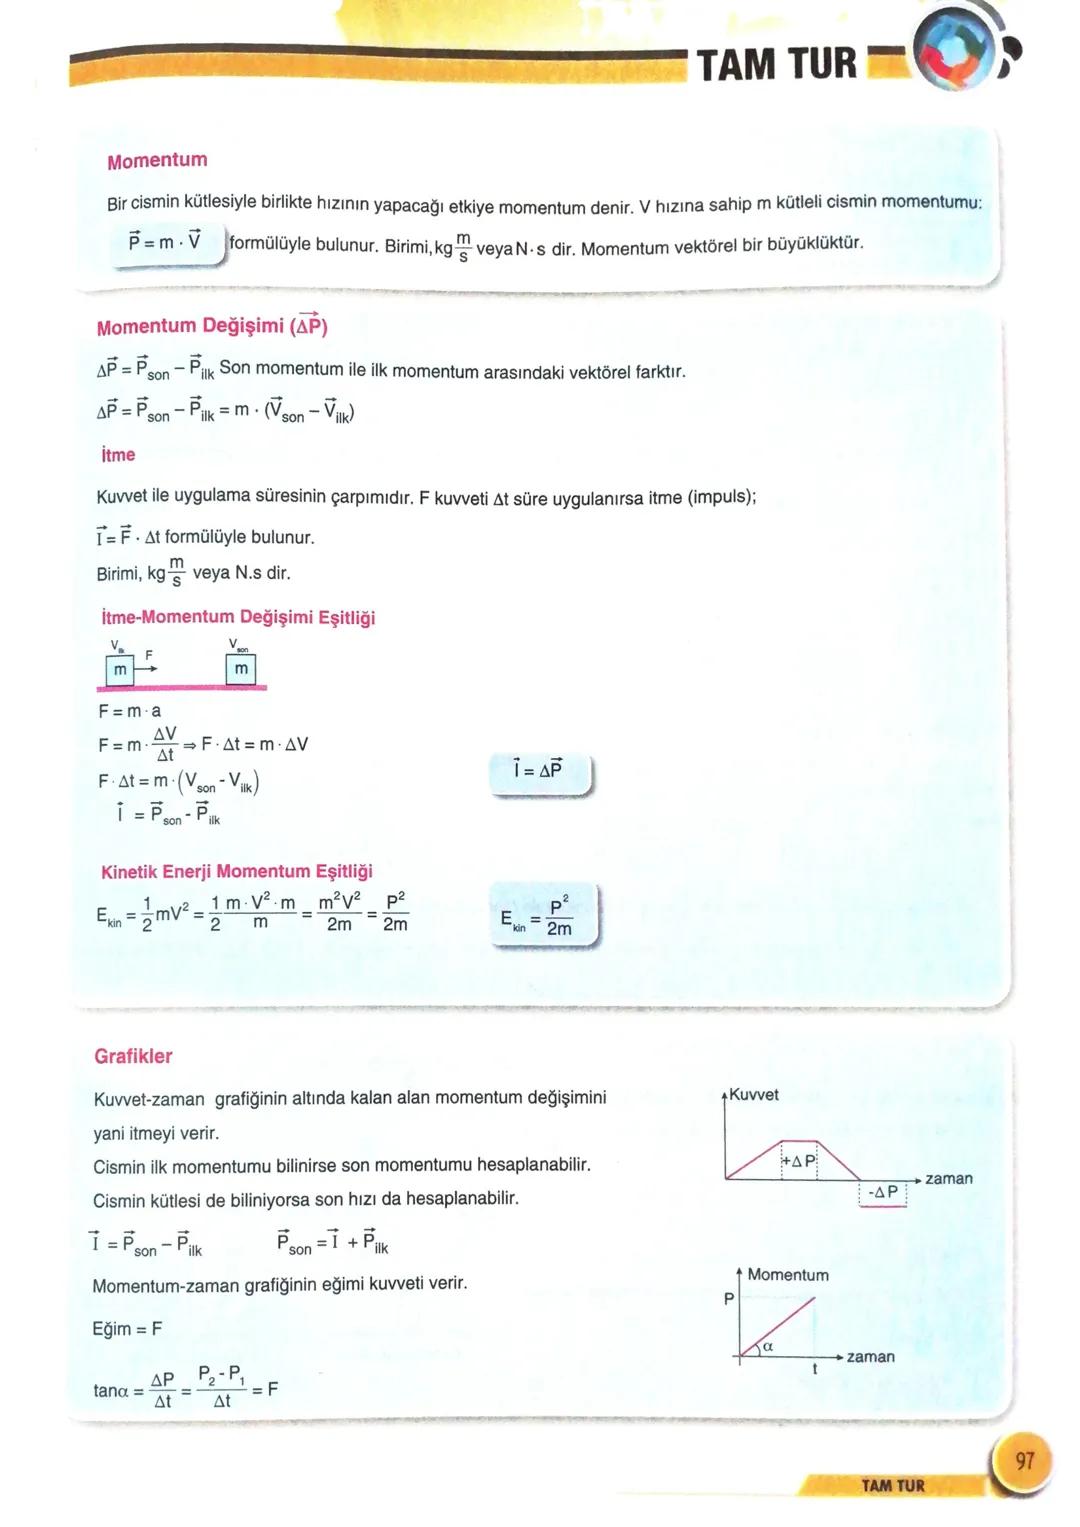 TAM TUR
Momentum
Bir cismin kütlesiyle birlikte hızının yapacağı etkiye momentum denir. V hızına sahip m kütleli cismin momentumu:
P⃗ = m · V⃗ formülüyle bulunur. Birimi, kg m/s veya N·s dir. Momentum vektörel bir büyüklüktür.
Momentum Değişimi (ΔP⃗)
ΔP⃗ = P⃗son − P⃗ilk Son momentum ile ilk momentum arasındaki vektörel farktır.
ΔP⃗ = P⃗son − P⃗ilk = m · (V⃗son − V⃗ilk)
İtme
Kuvvet ile uygulama süresinin çarpımıdır. F kuvveti Δt süre uygulanırsa itme (impuls);
I⃗ = F⃗ · Δt formülüyle bulunur.
Birimi, kg m/s veya N.s dir.
İtme-Momentum Değişimi Eşitliği
Vilk F Vson
m m
F = m · a
F = m · ΔV/Δt ⇒ F · Δt = m · ΔV
I⃗ = ΔP⃗
F · Δt = m · (Vson - Vilk)
I⃗ = P⃗son - P⃗ilk
Kinetik Enerji Momentum Eşitliği
Ekin = 1/2 mV² = 1/2 m · V² · m/m = m²V²/2m = P²/2m
Ekin = P²/2m
Grafikler
Kuvvet-zaman grafiğinin altında kalan alan momentum değişimini
yani itmeyi verir.
Cismin ilk momentumu bilinirse son momentumu hesaplanabilir.
Cismin kütlesi de biliniyorsa son hızı da hesaplanabilir.
I⃗ = P⃗son − P⃗ilk P⃗son = I⃗ + P⃗ilk
Momentum-zaman grafiğinin eğimi kuvveti verir.
Eğim = F
tanα = ΔP/Δt = P₂ - P₁/Δt = F
Kuvvet
+ΔP
zaman
-ΔP
Momentum
P
α
zaman
t
97
TAM TUR